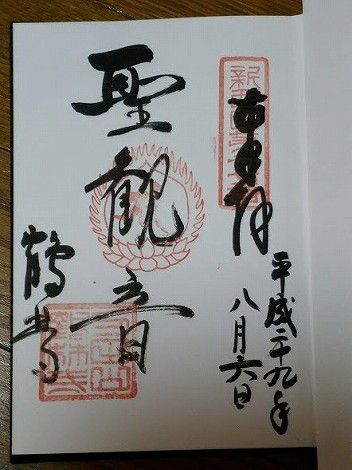 奉拝
平成二十九年
八月六日
聖観音
鶴林寺